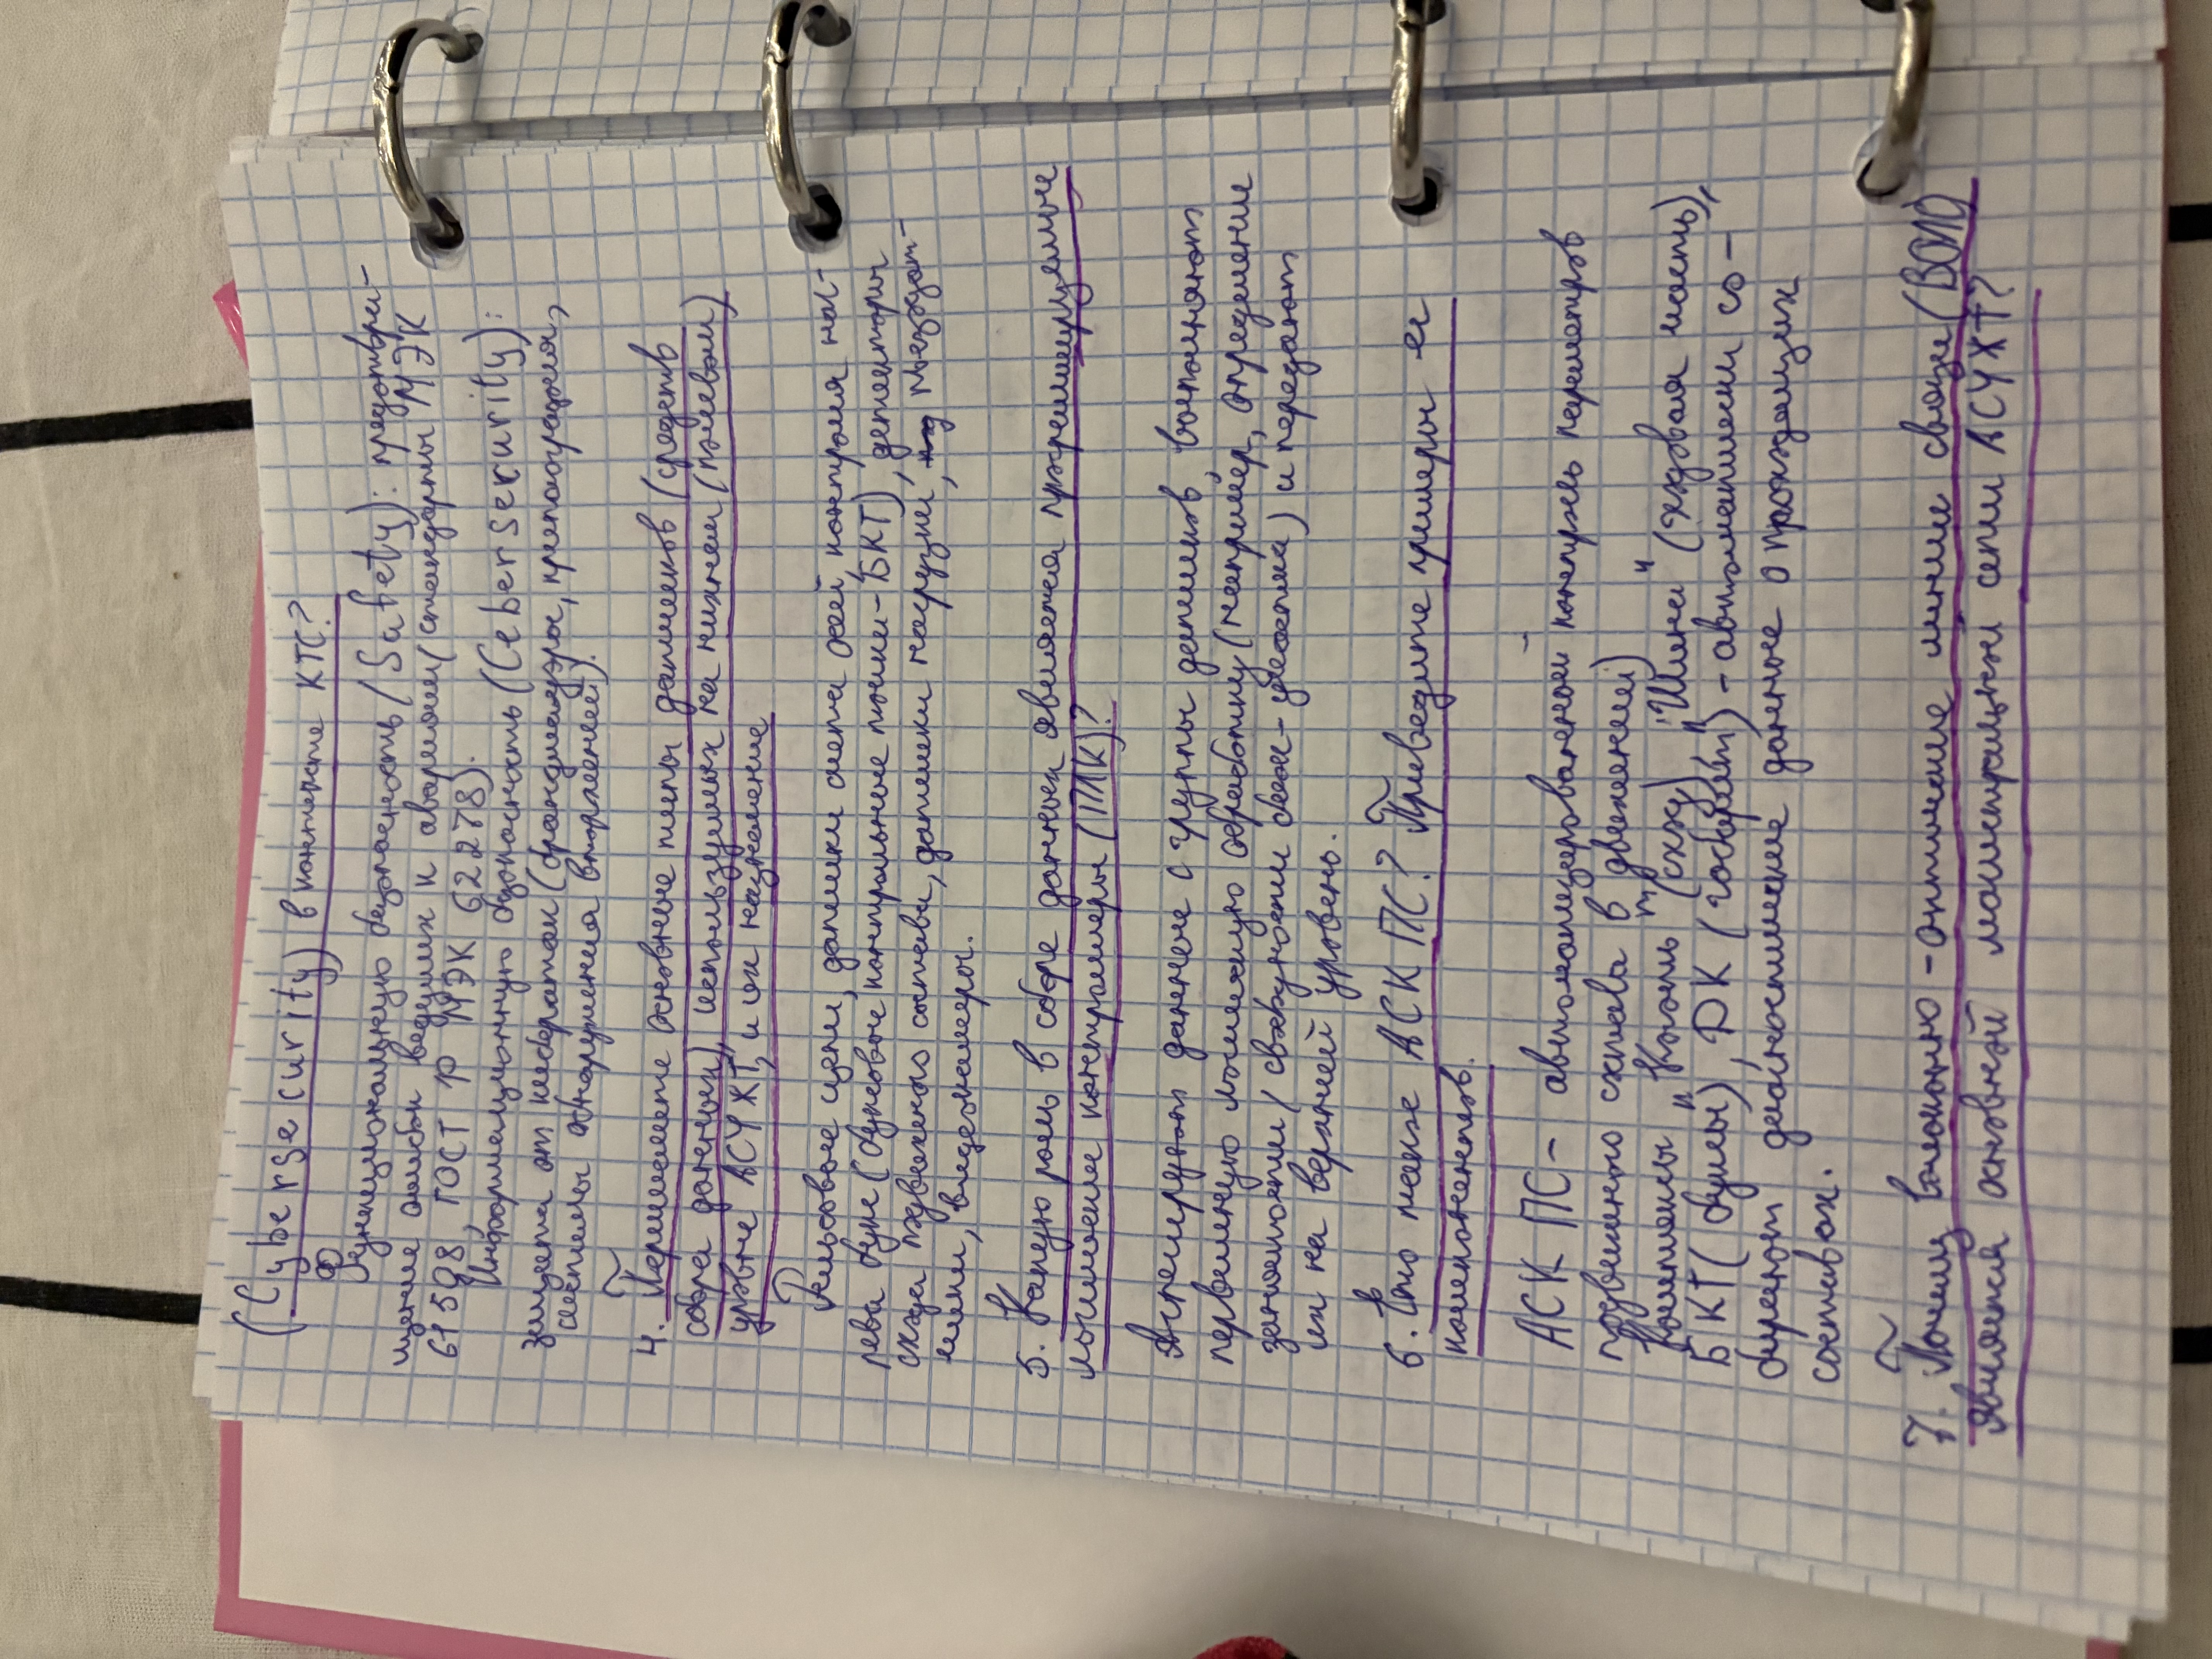 (Cyberserurity) в контексте КТС?
Функциональную безопасность (Safety): предотвра-
щение ошибок ведущих к авариям (стандарты МЭК
61508, ГОСТ Р МЭК 62278).
Информационную безопасность (Ceberserurity):
защита от кибератак (брандмауэры, криптография,
системы обнаружения вторжений).
4. Перечислите основные типы датчиков (средств
сбора данных), используемых на нижнем (полевом)
уровне АСУЖТ, и их назначение
Рельсовые цепи, датчики счета осей, контроля наг-
рева букс (буксовые контрольные точки - БКТ), детекторы
схода подвижного состава, датчики нагрузки, метеодат-
чики, видеокамеры.
5. Какую роль в сборе данных являются программируемые
логические контроллеры (ПЛК)?
Агрегируют данные с группы датчиков, выполняют
первичную логическую обработку (например, определение
занятости / свободности блок-участка) и передают
их на верхний уровень.
6. Что такое АСК ПС? Приведите примеры её
компонентов.
АСК ПС - автоматизированный контроль параметров
подвижного состава в движении)
Комплексы "Контроль" (сход), "Шина" (ходовая часть),
БКТ (буксы), "РК (габарит)" - автоматически со-
бирают диагностические данные о проходящих
составах.
7. Почему волоконно-оптические линии связи (ВОЛС)
являются основной магистральных сети АСУЖТ?